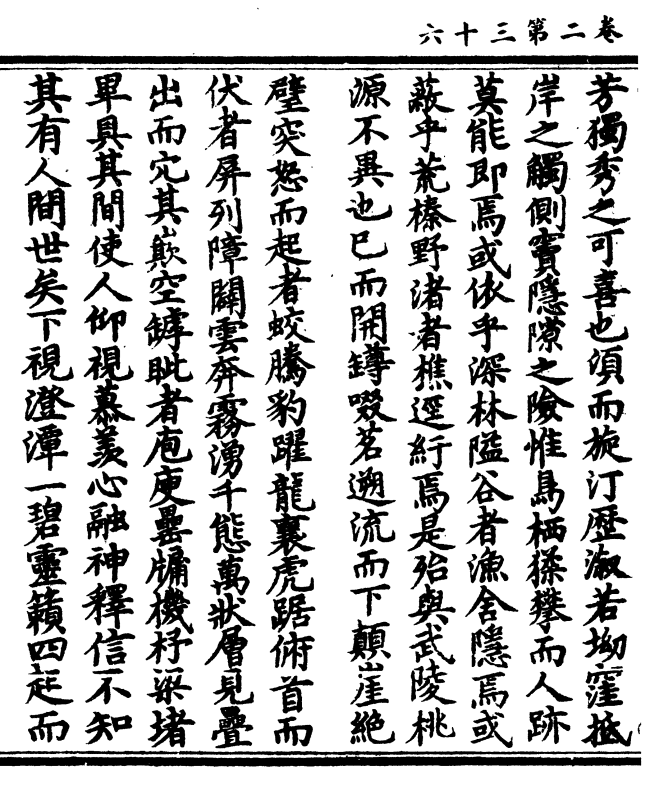 卷二第三十六
芳獨秀之可喜也湏而旋汀歷溆若坳窪抵
岸之觸側竇隱隙之險惟鳥栖猱攀而人跡
莫能即焉或依乎深林隘谷者漁舍隱焉或
蔽乎荒榛野渚者樵逕紆焉是殆與武陵桃
源不異也已而開罇啜茗遡流而下顛崖絶
壁突怒而起者蛟騰豹躍龍襄虎踞俯首而
伏者屏列障闢雲奔霧湧千態萬狀層見疊
出而穴其嵌空罅者庖庾罍牖機杼梁堵
畢具其間使人仰視慕羨心融神釋信不知
其有人間世矣下視澄潭一碧靈籟四起而